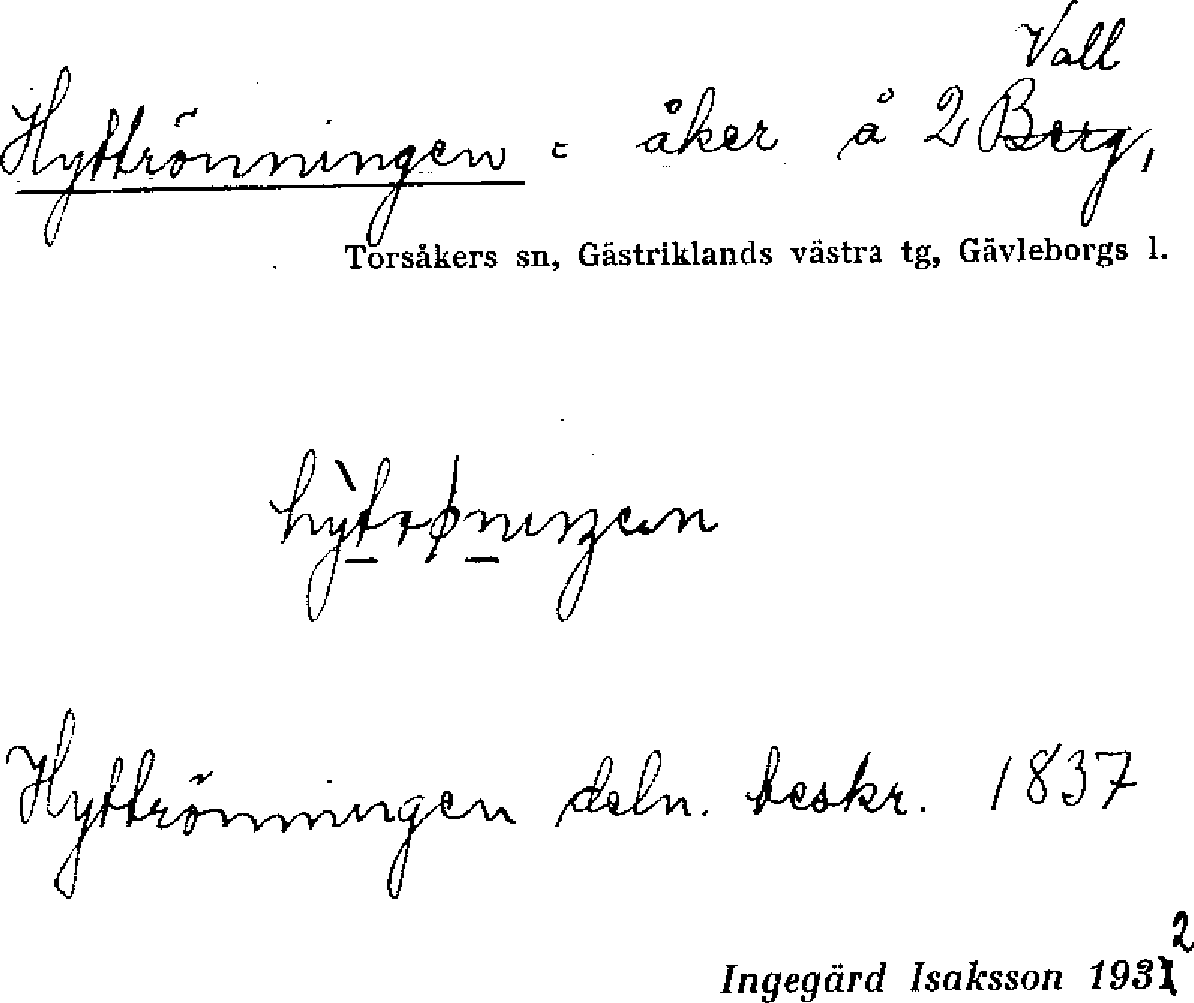 Vall
Hyttrönningen = åker å 2 Berg,
Torsåkers sn, Gästriklands västra tg, Gävleborgs l.
Hyttrönningen deln. beskr. 1837
Ingegärd Isaksson 1932